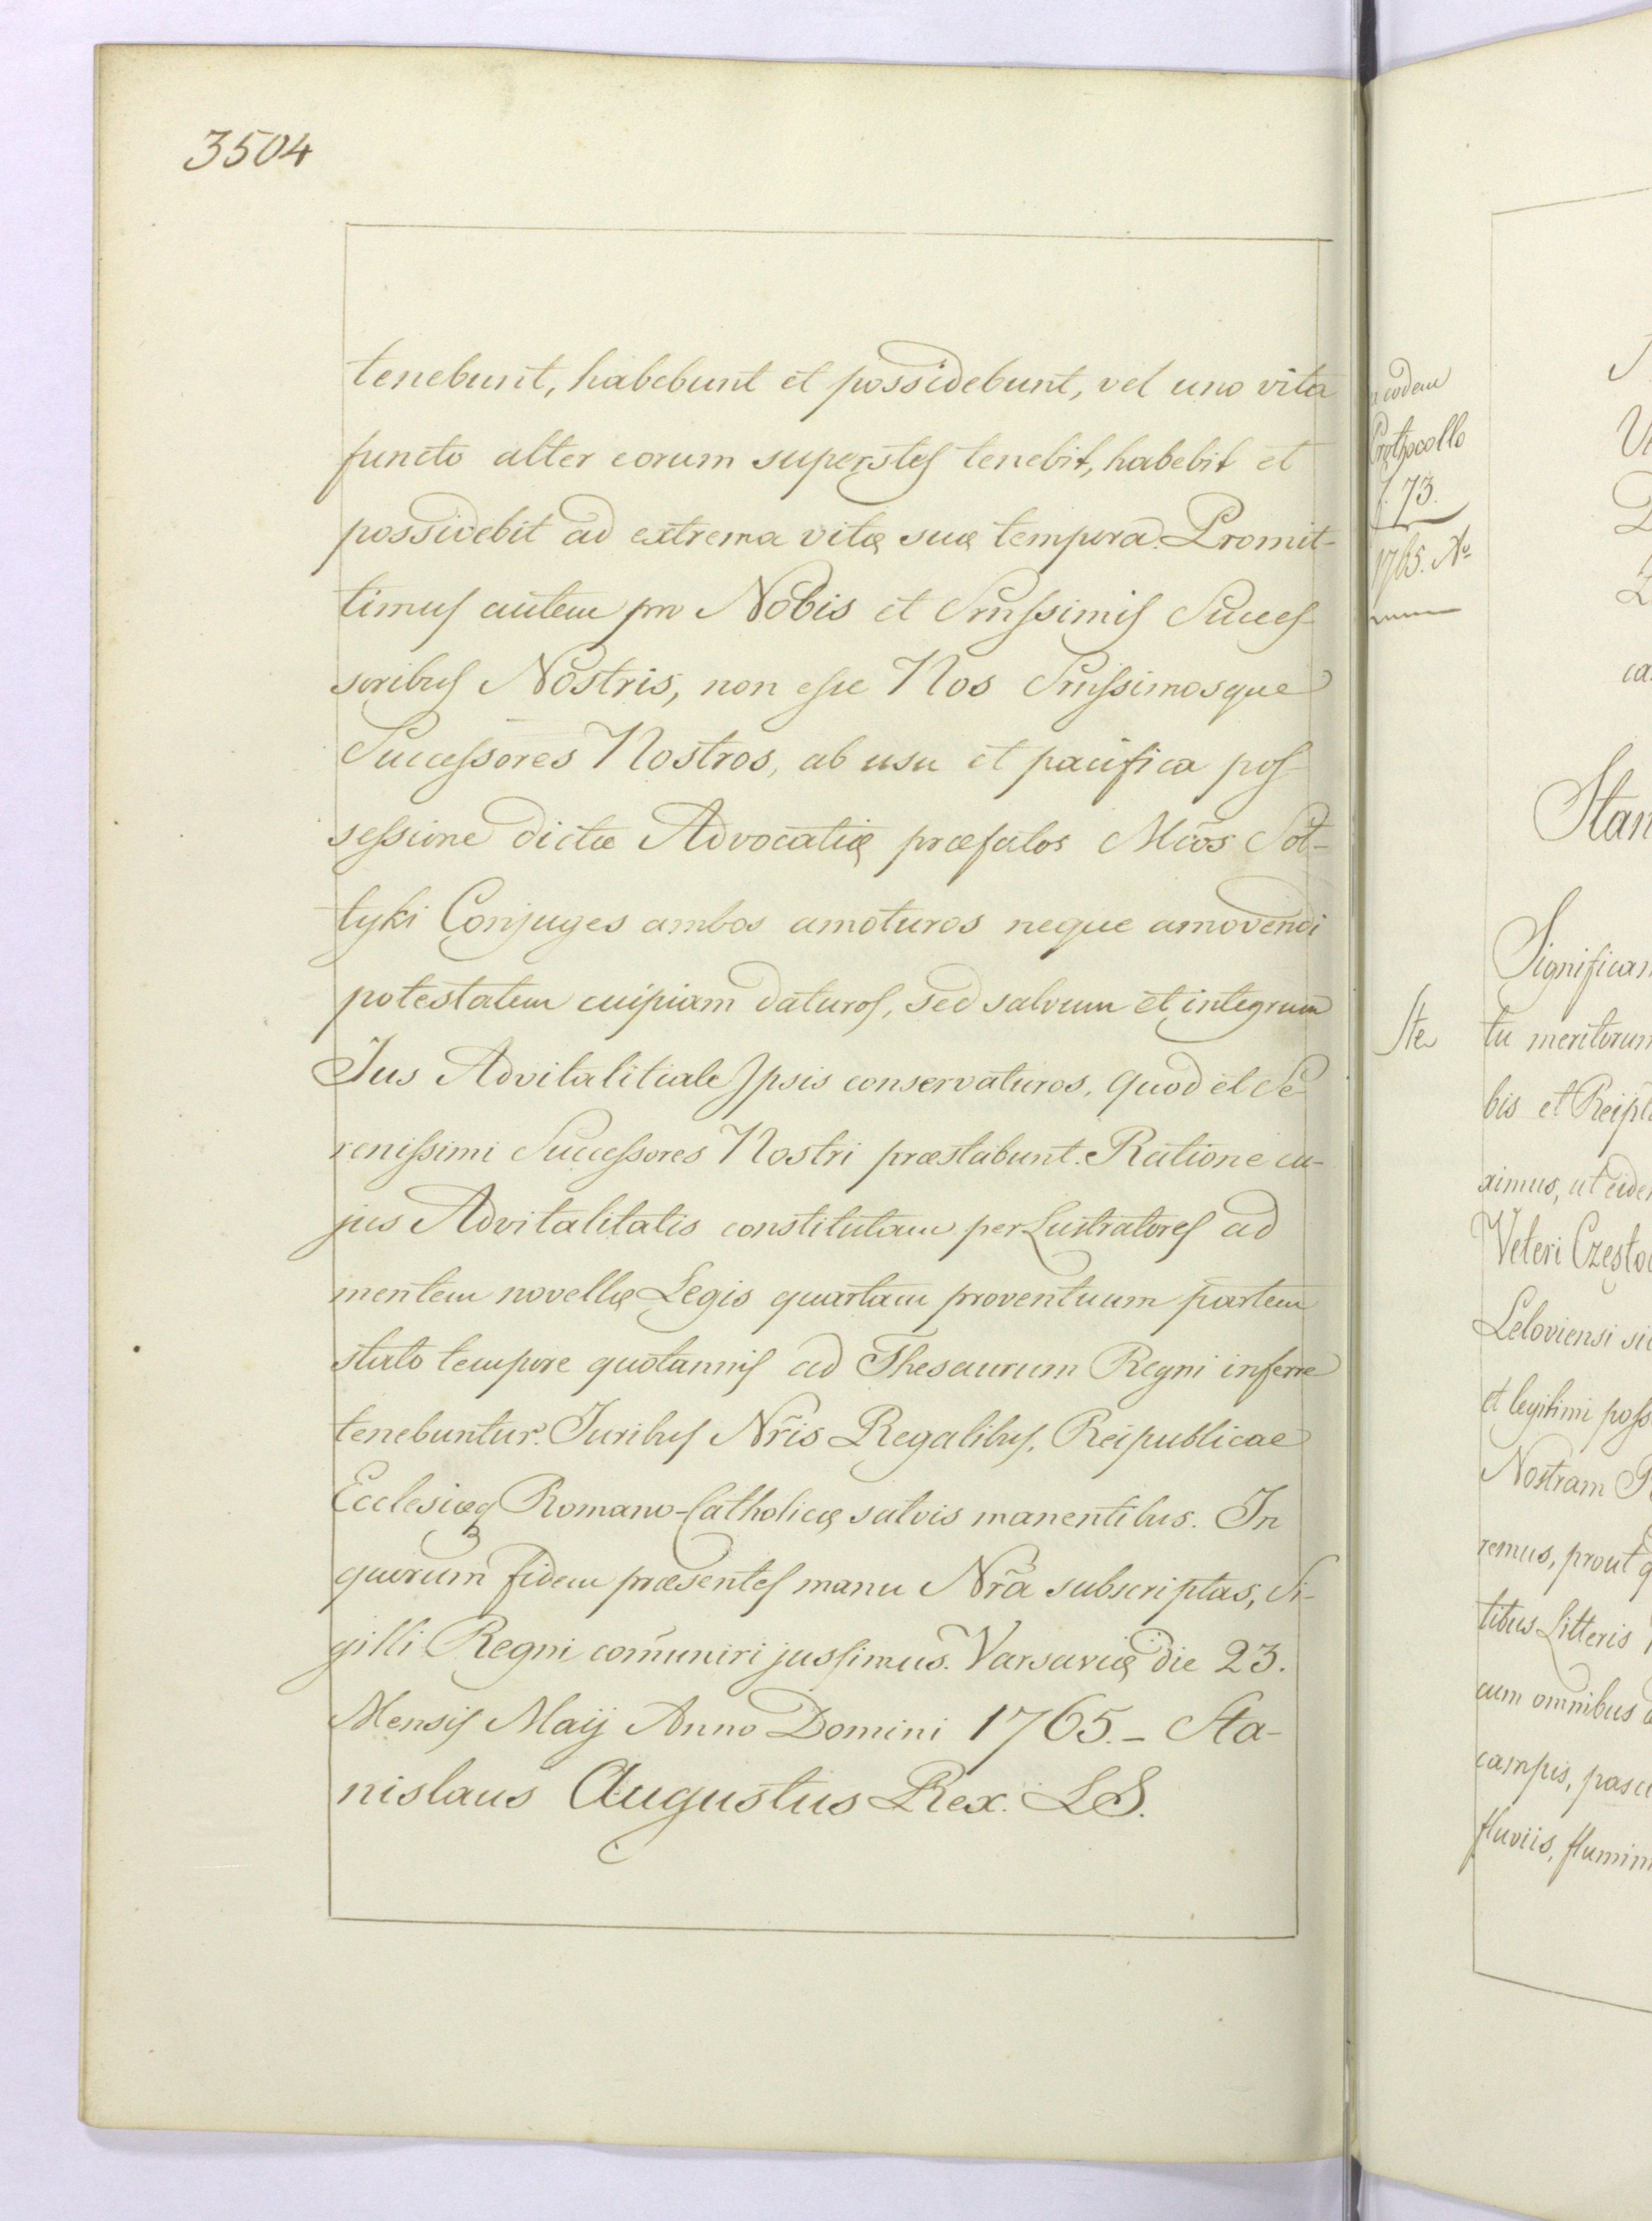 3504
tenebunt, habebunt et possidebunt, vel uno vita
functo alter eorum superstes tenebit, habebit et
possidebit ad extrema vitæ suæ tempora. Promit-
timus autem pro Nobis et Srnissimis Succes-
soribus Nostris, non esse Nos Srnissimosque
Successores Nostros, ab usu et pacifica pos-
sessione dictæ Advocatiæ præfatos Mcos Sol-
tyki Conjuges ambos amoturos neque amovendi
potestatem cuipiam daturos, sed salvum et integrum
Jus Advitalitiale Ipsis conservaturos, quod et Se-
renissimi Successores Nostri præstabunt. Ratione cu-
jus Advitalitatis constitutam per Lustratores ad
mentem novellæ Legis quartam proventuum partem
stato tempore quotannis ad Thesaurum Regni inferre
tenebuntur. Juribus Nr̃is Regalibus, Reipublicae
Ecclesiæq Romano-Catholicæ salvis manentibus. In
quorum fidem præsentes manu Nr̃a subscriptas, Si-
gilli Regni com̃uniri jussimus. Varsaviæ die 23.
Mensis Maij Anno Domini 1765. – Sta-
nislaus Augustus Rex. LS.
eodem
Prothocollo
f. 73.
1765. No
Stan
Significam
tu meritorum
bis et Reipl
ximus, ut eidem
Veteri Częstoc
Leloviensi si
et legitimi poss
Nostram
remus, prout q
titus Litteris
cum omnibus
campis, pascu
fluviis, flumin